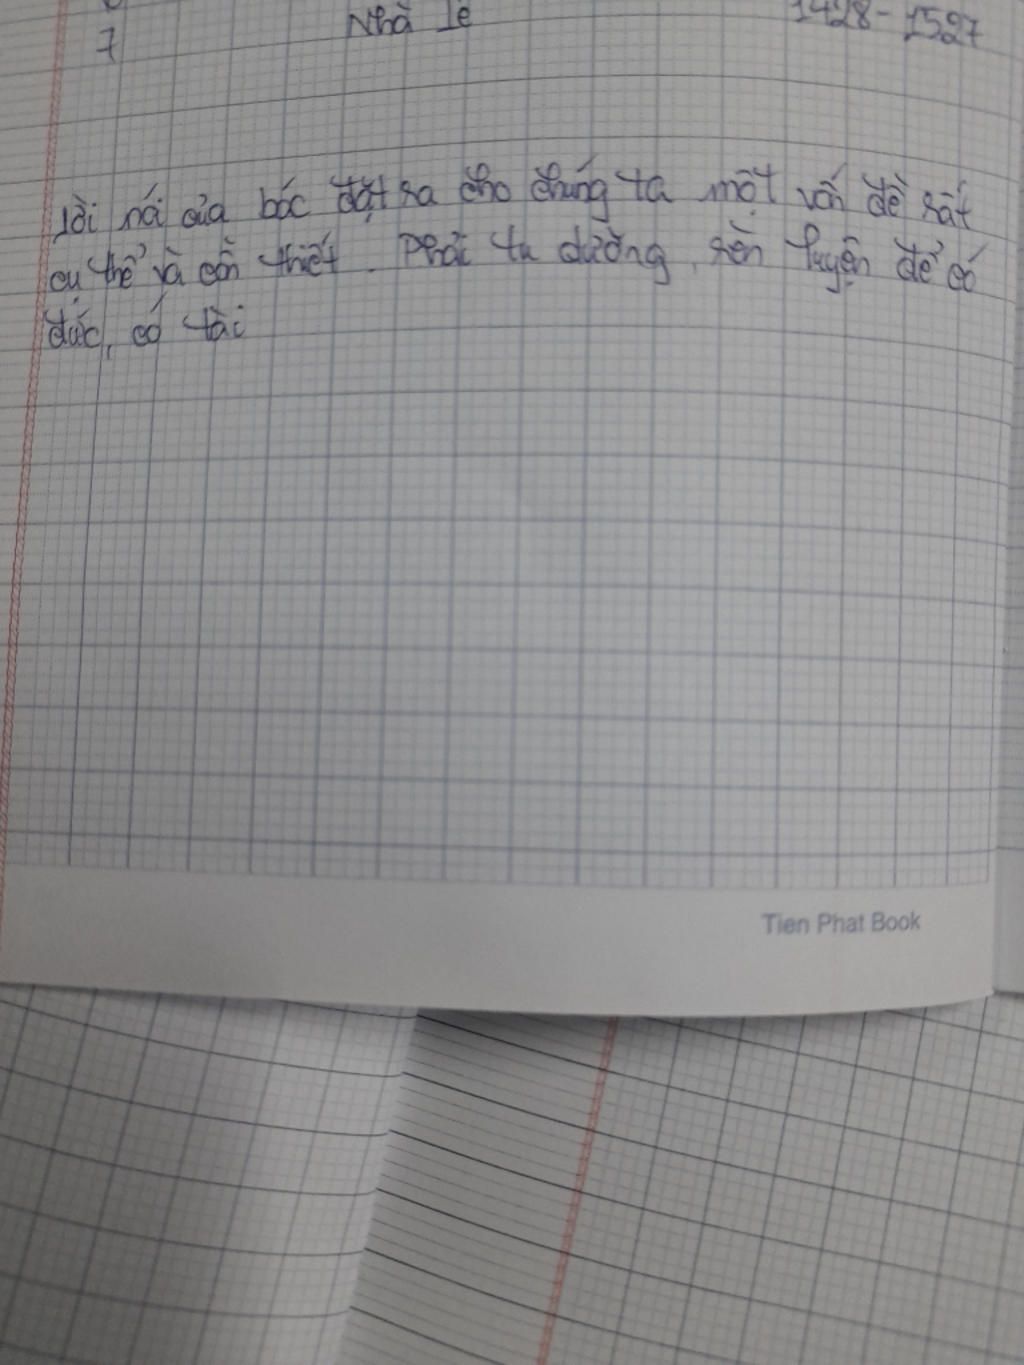 7 Nhà lê 1428 - 1527
Lời nói của bác đặt ra cho chúng ta một vấn đề rất
cụ thể và cần thiết. Phải tu dưỡng, rèn luyện để có
đức, có tài
Tien Phat Book